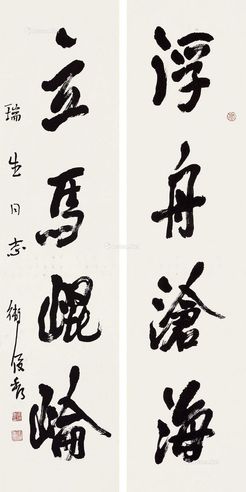 浮舟滄海
立馬崐崘
瑞生同志
衛俊秀